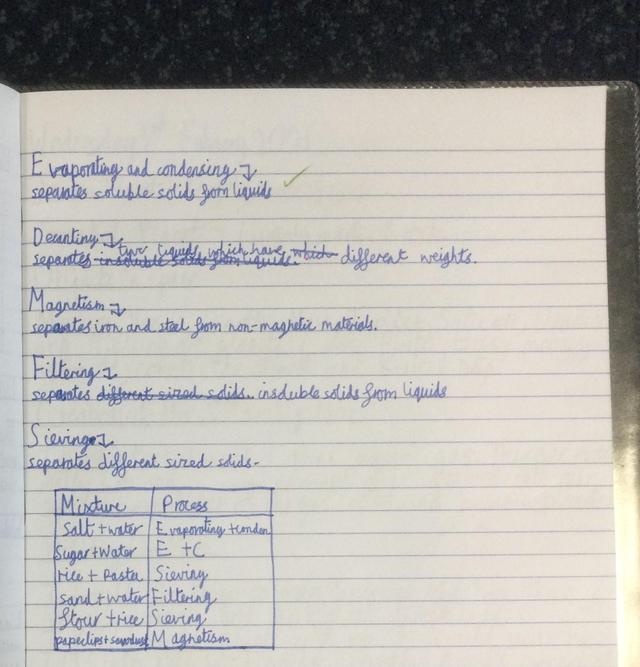 Evaporating and condensing
separates soluble solids from liquids
Decanting
separates insoluble solids from liquids. two liquids which have which different weights.
Magnetism
separates iron and steel from non-magnetic materials.
Filtering
separates different sized solids. insoluble solids from liquids
Sieving
separates different sized solids.
Mixture Process
Salt + water Evaporating + conden
Sugar + Water E + C
rice + Pasta Sieving
sand + water Filtering
flour + rice Sieving
paperclips + sawdust Magnetism